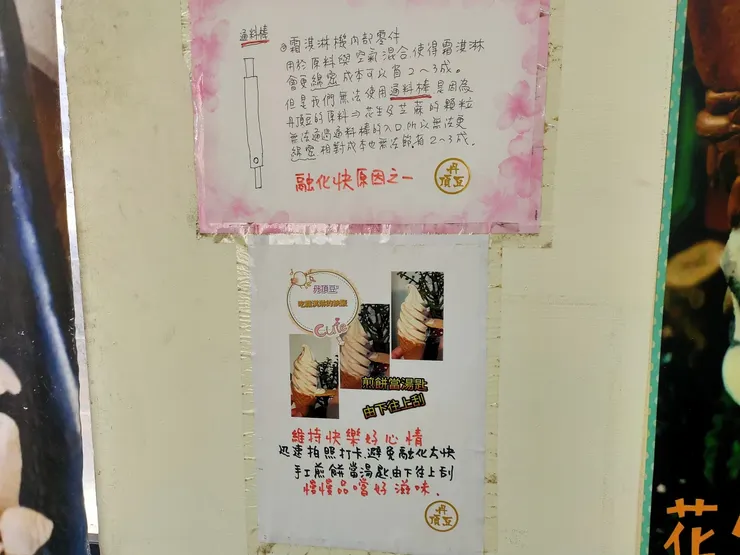 過料棒
霜淇淋機內部零件
用於原料與空氣混合,使得霜淇淋
會更綿密成本可以省2~3成。
但是我們無法使用過料棒是因為
丹頂豆的原料⇒花生&芝蔴的顆粒
無法通過過料棒的入口所以無法更
綿密相對成本也無法節省2~3成.
融化快原因之一
丹頂豆
丹頂豆
Cute
煎餅當湯匙
由下往上刮
維持快樂好心情
迅速拍照打卡.避免融化太快
手工煎餅當湯匙由下往上刮
慢慢品嚐好滋味.
丹頂豆
花